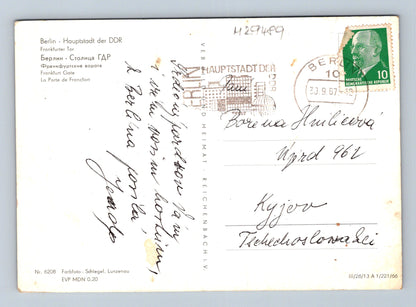 Berlin - Hauptstadt der DDR
Frankfurter Tor
Берлин - Столица ГДР
Франкфуртские ворота
Frankfurt Gate
La Porte de Francfort
H29499
BERLIN
HAUPTSTADT DER
DDR
BERLIN
10
10
DEUTSCHE DEMOKRATISCHE REPUBLIK
Srdečný pozdrav Vám
i všem
z Berlína posílá
VERLAG BILD UND HEIMAT REICHENBACH I. V.
Paní
Božena
Újezd 462
Kyjov
Tschechoslowakei
Nr. 6208 Farbfoto - Schlegel, Lunzenau
EVP MDN 0,20
III/26/13 A 1/221/66